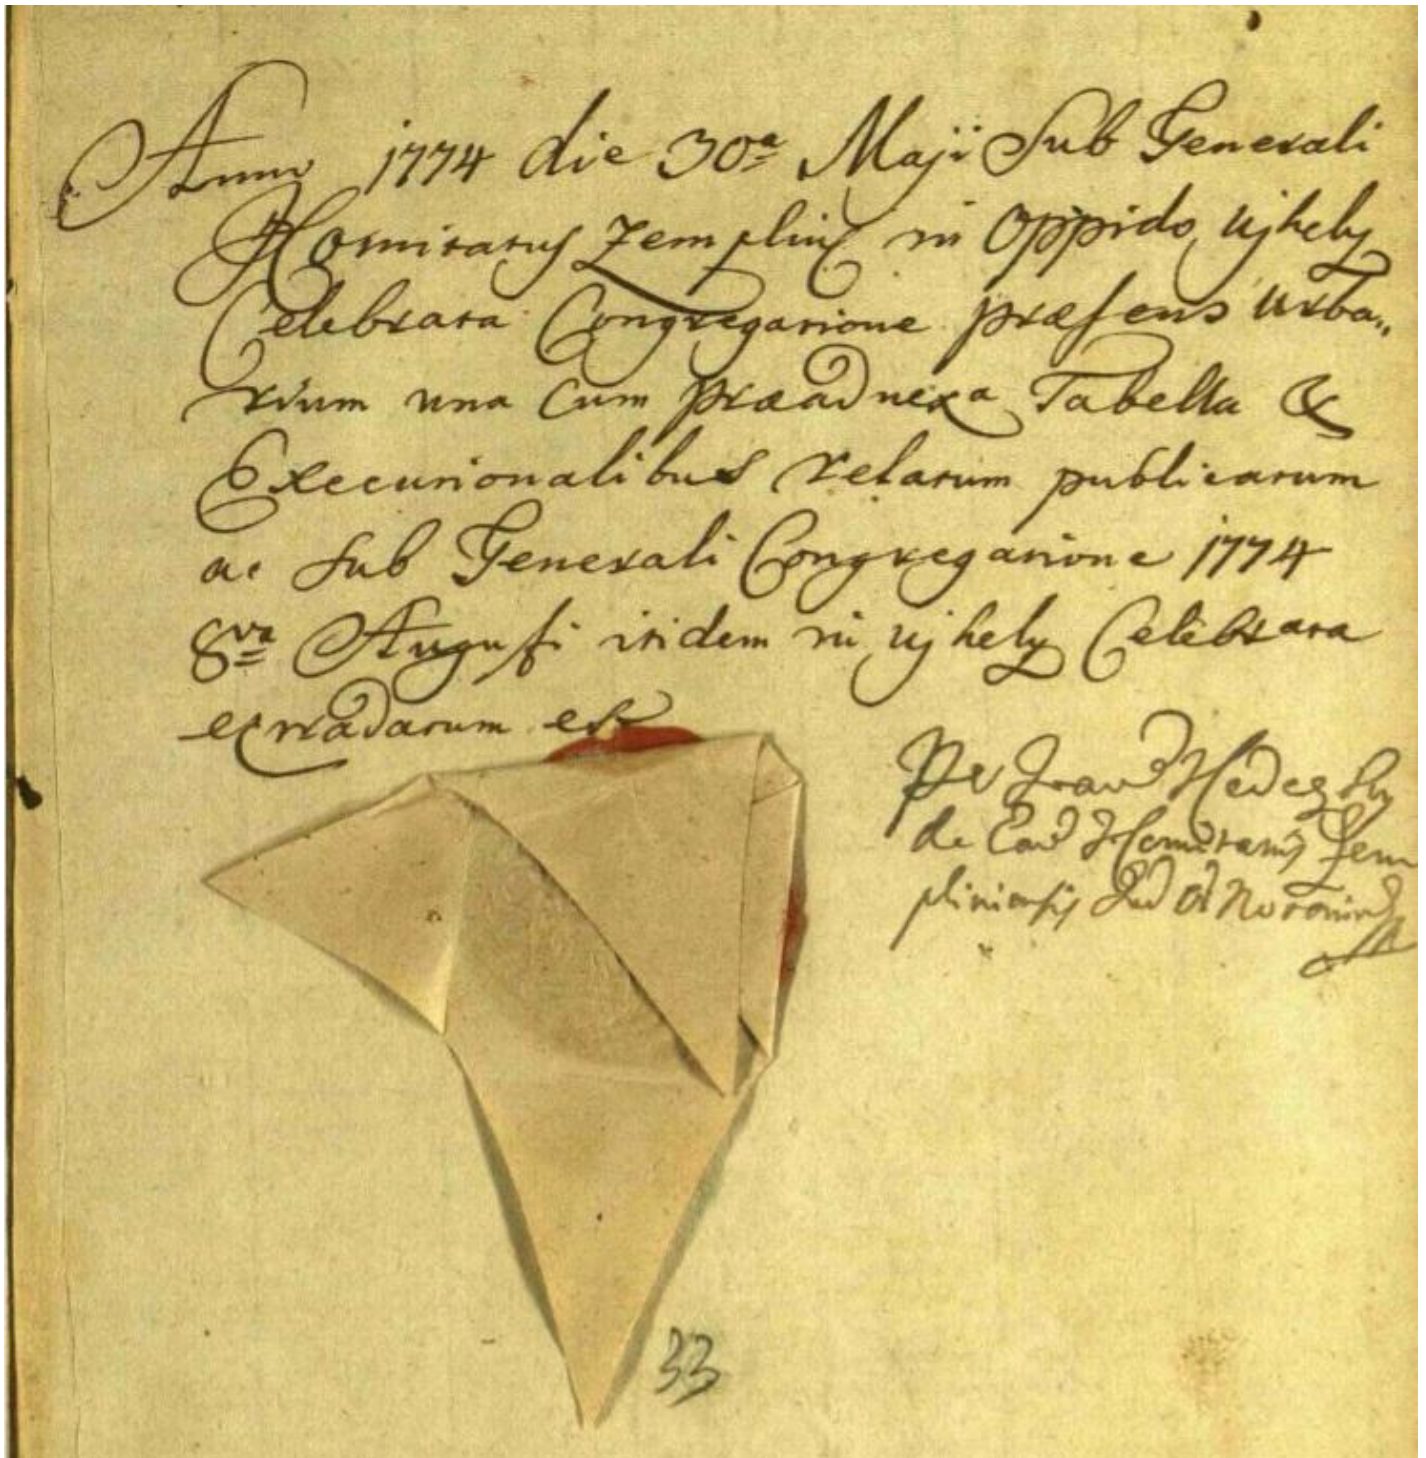 Anno 1774 die 30a Maji Sub Generali
I Comitatus Zemplin in Oppido Ujhely
Celebrata Congregatione præsens Urba„
rium una Cum præadnexa Tabella &
Executionalibus relatum publicatum
ac Sub Generali Congregatione 1774
8va Augusti itidem in Ujhely Celebrata
extradatum est
Per Hedeghy
de I Comitatus Zem
pliniensis Ord Notarium
33